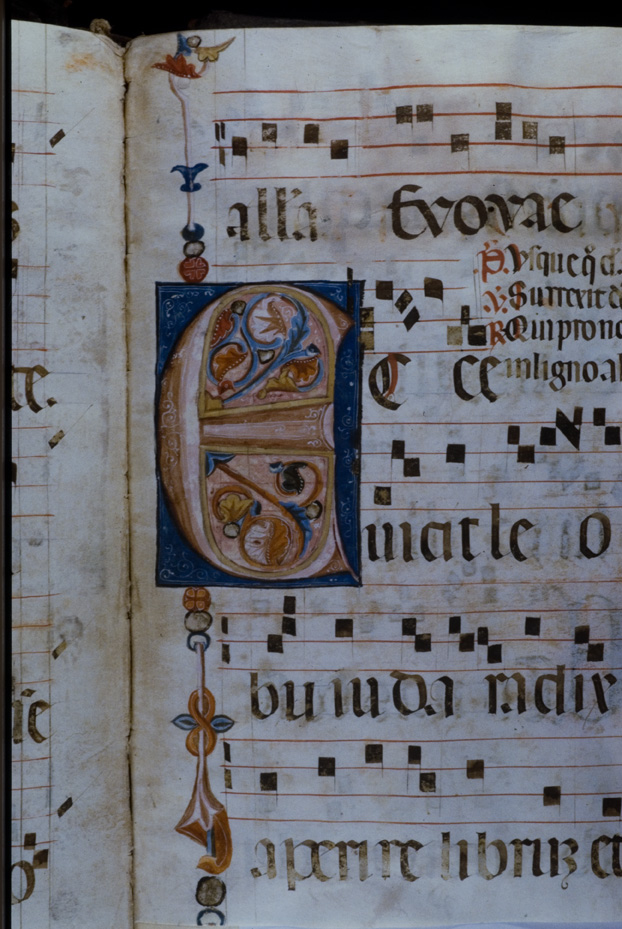 alła Evovae
Usque q̄ d
℣. Surrexit d
℟ Qui pro no
E C CE in ligno. al
uicit le o
bu iuda radix
aperire libruꝫ et